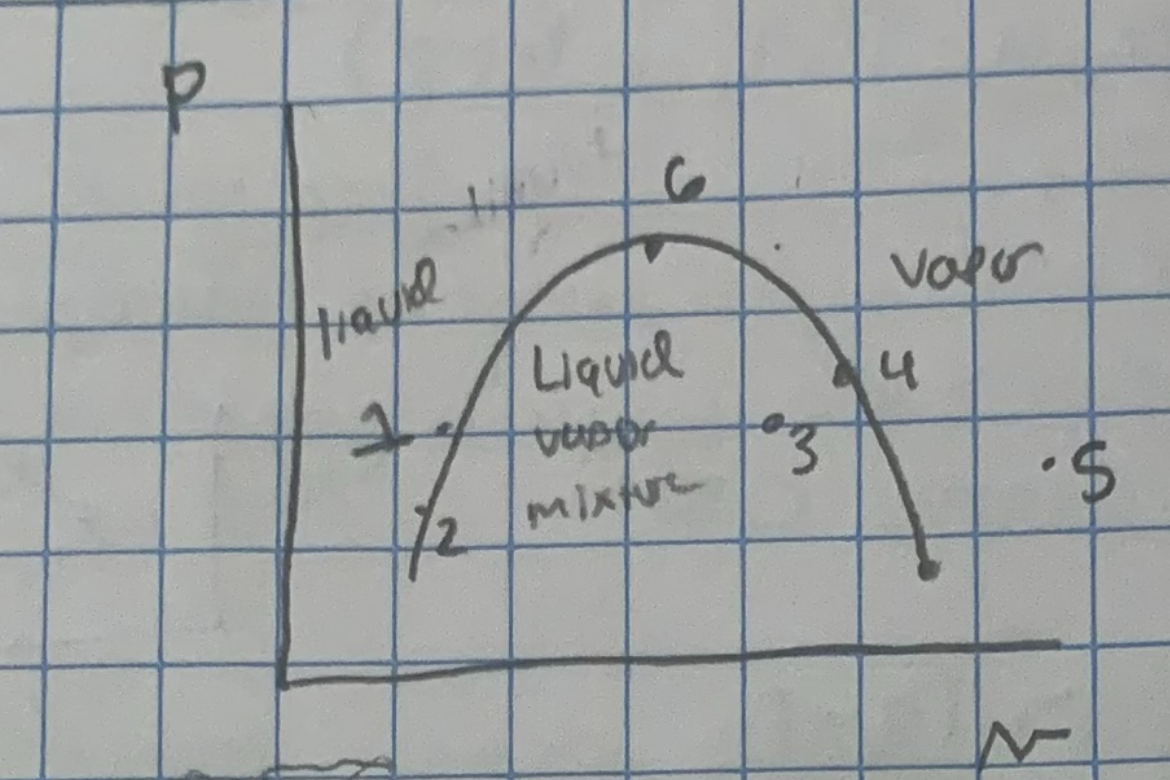 P
6
vapor
liquid
Liquid
vapor
mixture
4
1
3
5
2